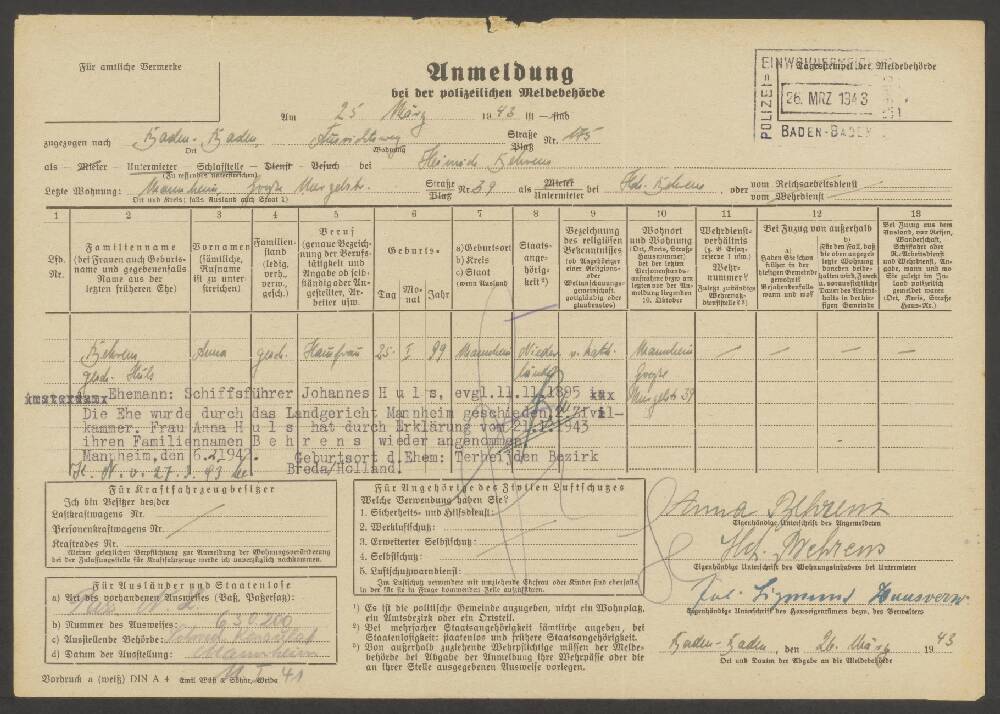 Für amtliche Vermerke
Anmeldung
bei der polizeilichen Meldebehörde
Tagesstempel der Meldebehörde
POLIZEI=
26. MRZ 1943
BADEN-BADEN
Am 25 März 1943
zugezogen nach Baden-Baden Straße Platz Nr. 175
Ort Wohnung
als Mieter - Untermieter - Schlafstelle - Dienst - Besuch - bei Heinrich Behrens
(Zutreffendes unterstreichen)
Letzte Wohnung: Mannheim Straße Platz Nr. 39 als Mieter Untermieter bei Hch. Behrens, oder vom Reichsarbeitsdienst vom Wehrdienst
Ort und Kreis; falls Ausland auch Staat 1)
1 2 3 4 5 6 7 8 9 10 11 12 13
Lfd. Nr.
Familienname (bei Frauen auch Geburtsname und gegebenenfalls Name aus der letzten früheren Ehe)
Vornamen (sämtliche, Rufname ist zu unterstreichen)
Familienstand (ledig, verh., verw., gesch.)
Beruf (genaue Bezeichnung der Berufstätigkeit und Angabe ob selbständig oder Angestellter, Arbeiter usw.
Geburts-
Tag Monat Jahr
a) Geburtsort b) Kreis c) Staat (wenn Ausland)
Staatsangehörigkeit 2)
Bezeichnung des religiösen Bekenntnisses (ob Angehöriger einer Religions- oder Weltanschauungsgemeinschaft, gottgläubig oder glaubenslos)
Wohnort und Wohnung (Ort, Kreis, Straße, Hausnummer) bei der letzten Personenstandsaufnahme vom 10. Oktober
Wehrdienstverhältnis
Wehrnummer?
Bei Zuzug von außerhalb
a) Haben Sie schon früher in der diesigen Gemeinde gewohnt? Bejahendenfalls wann und wo?
b) Für den Fall, daß die oben angegebene letzte Wohnung daneben beibehalten wird, Zweck u. voraussichtliche Dauer des Aufenthalts in der hiesigen Gemeinde
Bei Zuzug aus dem Ausland, von Reisen, Wanderschaft, Schiffahrt oder R.-Arbeitsdienst und Wehrdienst, Angabe, wann und wo Sie zuletzt im Inland polizeilich gemeldet waren (Ort, Kreis, Straße Haus-Nr.)
Behrens Anna gesch. Hausfrau 25. I 99 Mannheim Niederländ. r. kath. Mannheim — — — —
gesch. Huls 39
Ehemann: Schiffsführer Johannes H u l s, evgl.11.11.1895 in
Die Ehe wurde durch das Landgericht Mannheim geschieden, 2.Zivilkammer. Frau Anna H u l s hat durch Erklärung vom 21.1.1943
ihren Familiennamen B e h r e n s wieder angenommen.
Mannheim,den 6.2.1942. Geburtsort d.Ehem: Terheijden Bezirk
Breda/Holland.
K. N. v. 27.3.43
Für Kraftfahrzeugbesitzer
Ich bin Besitzer des/der
Lastkraftwagens Nr.
Personenkraftwagens Nr.
Kraftrades Nr.
Meiner gesetzlichen Verpflichtung zur Anmeldung der Wohnungsveränderung
bei der Zulassungsstelle für Kraftfahrzeuge werde ich unverzüglich nachkommen.
Für Ausländer und Staatenlose
a) Art des vorhandenen Ausweises (Paß, Paßersatz):
b) Nummer des Ausweises: 630200
c) Ausstellende Behörde:
Mannheim
d) Datum der Ausstellung: 41
Vordruck a (weiß) DIN A 4
Für Angehörige des Zivilen Luftschutzes
Welche Verwendung haben Sie?
1. Sicherheits- und Hilfsdienst:
2. Werkluftschutz:
3. Erweiterter Selbstschutz:
4. Selbstschutz:
5. Luftschutzwarndienst:
Im Luftschutz verwendete mit umziehende Ehefrau oder Kinder sind ebenfalls
in der für sie in Frage kommenden Zeile aufzuführen.
1) Es ist die politische Gemeinde anzugeben, nicht ein Wohnplatz,
ein Amtsbezirk oder ein Ortsteil.
2) Bei mehrfacher Staatsangehörigkeit sämtliche angeben, bei
Staatenlosigkeit: staatenlos und frühere Staatsangehörigkeit.
3) Von außerhalb zuziehende Wehrpflichtige müssen der Meldebehörde bei Abgabe der Anmeldung ihre Wehrpässe oder die
an ihrer Stelle ausgegebenen Ausweise vorlegen.
Anna Behrens
Eigenhändige Unterschrift des Angemeldeten
Hch. Behrens
Eigenhändige Unterschrift des Wohnungsinhabers bei Untermieter
Jul. Sigmund Hausverw.
Eigenhändige Unterschrift des Hauseigentümers bezw. des Verwalters
Baden-Baden, den 26. März 1943
Ort und Datum der Abgabe an die Meldebehörde